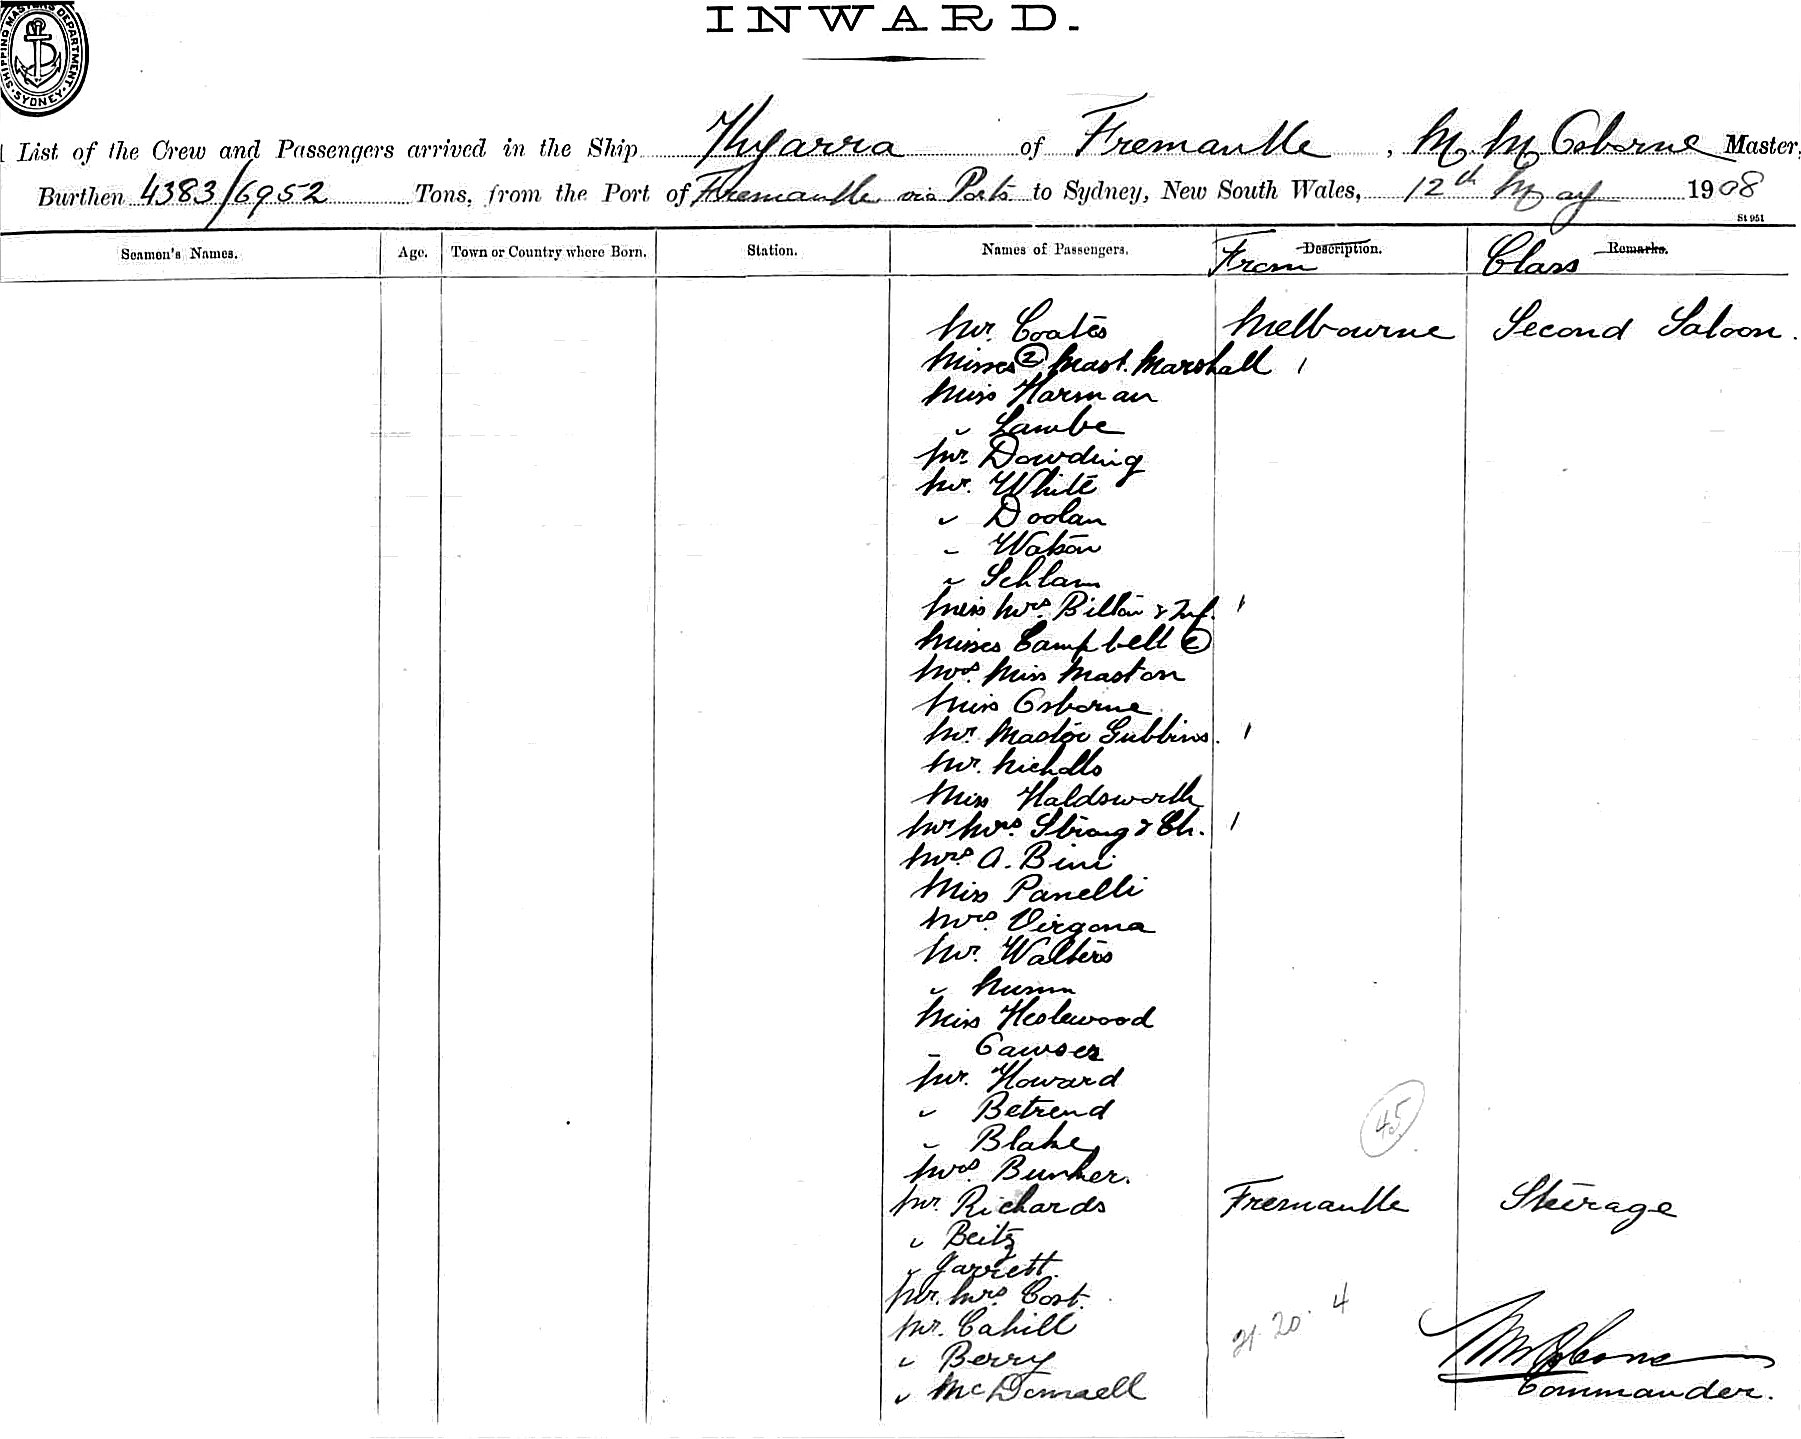 INWARD.
SHIPPING MASTERS DEPARTMENT. SYDNEY.
List of the Crew and Passengers arrived in the Ship Kyarra of Fremantle, M M Osborne Master,
Burthen 4383/6952 Tons, from the Port of Fremantle via Ports to Sydney, New South Wales, 12th May 1908
St 951
Seamen's Names. Age. Town or Country where Born. Station. Names of Passengers. From Description. Class Remarks.
Mr. Coates Melbourne Second Saloon.
Misses 2 Mast. Marshall 1
Miss Harman
" Lambe
Mr. Dowding
Mr. White
" Doolan
" Watson
" Schlam
Mrs. & Inf. 1
Misses Campbell 2
Mrs. Miss Maston
Miss Osborne
Mr. Master Gubbins. 1
Mr. Nicholls
Miss Haldsworth
Mr Mrs. Strong & Ch. 1
Mrs A. Bini
Miss Panelli
Mrs. Virgona
Mr. Walters
"
Miss Heslewood
"
Mr. Howard
" Betrend
" Blake
Mrs. Bunker.
45
Mr. Richards Fremantle Steerage
" Beitz
" Garrett.
Mr. Mrs Cost.
Mr. Cahill
21. 20. 4
" Berry
MM Osborne
" McDonnell
Commander.